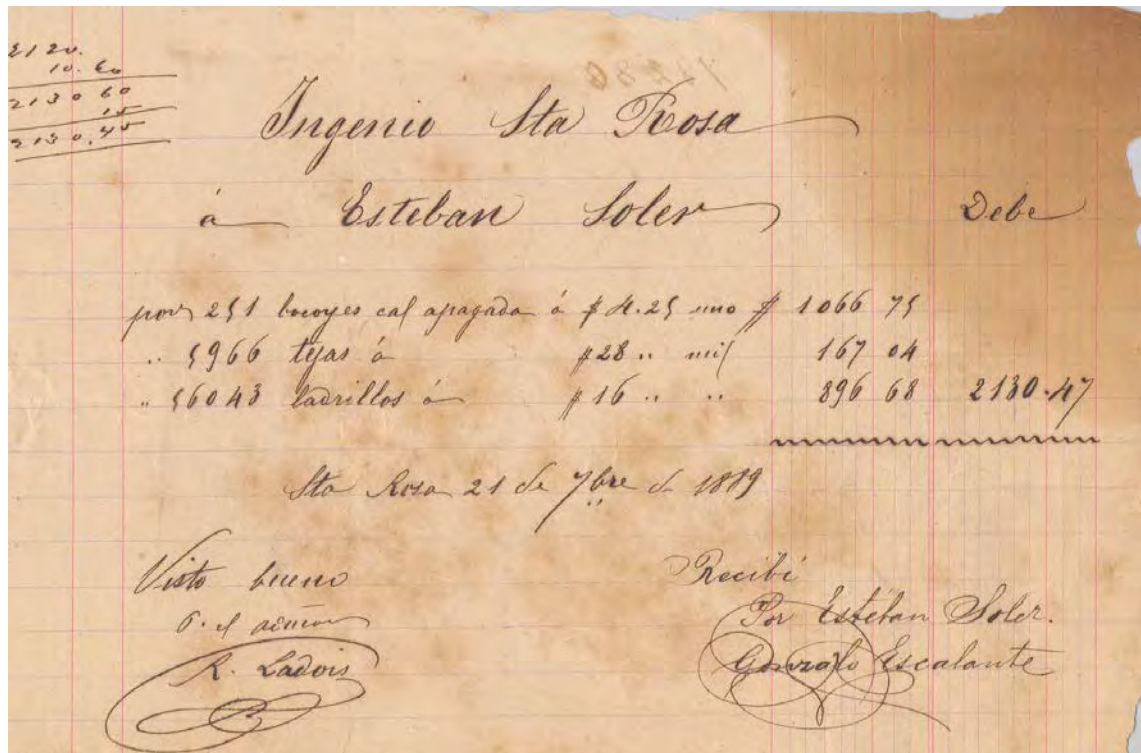 2120.
10.60
2130 60
15
2130.45
Ingenio Sta Rosa
á Esteban Soler Debe
por 251 bocoyes cal apagada á $ 4.25 uno $ 1066 75
„ 5966 tejas á $28 „ mil 167 04
„ 56043 ladrillos á $16 „ „ 896 68 2130.47
Sta Rosa 21 de 7bre de 1889
Visto bueno
P. el
R. Ladois
Recibí
Por Estéban Soler.
Gonzalo Escalante